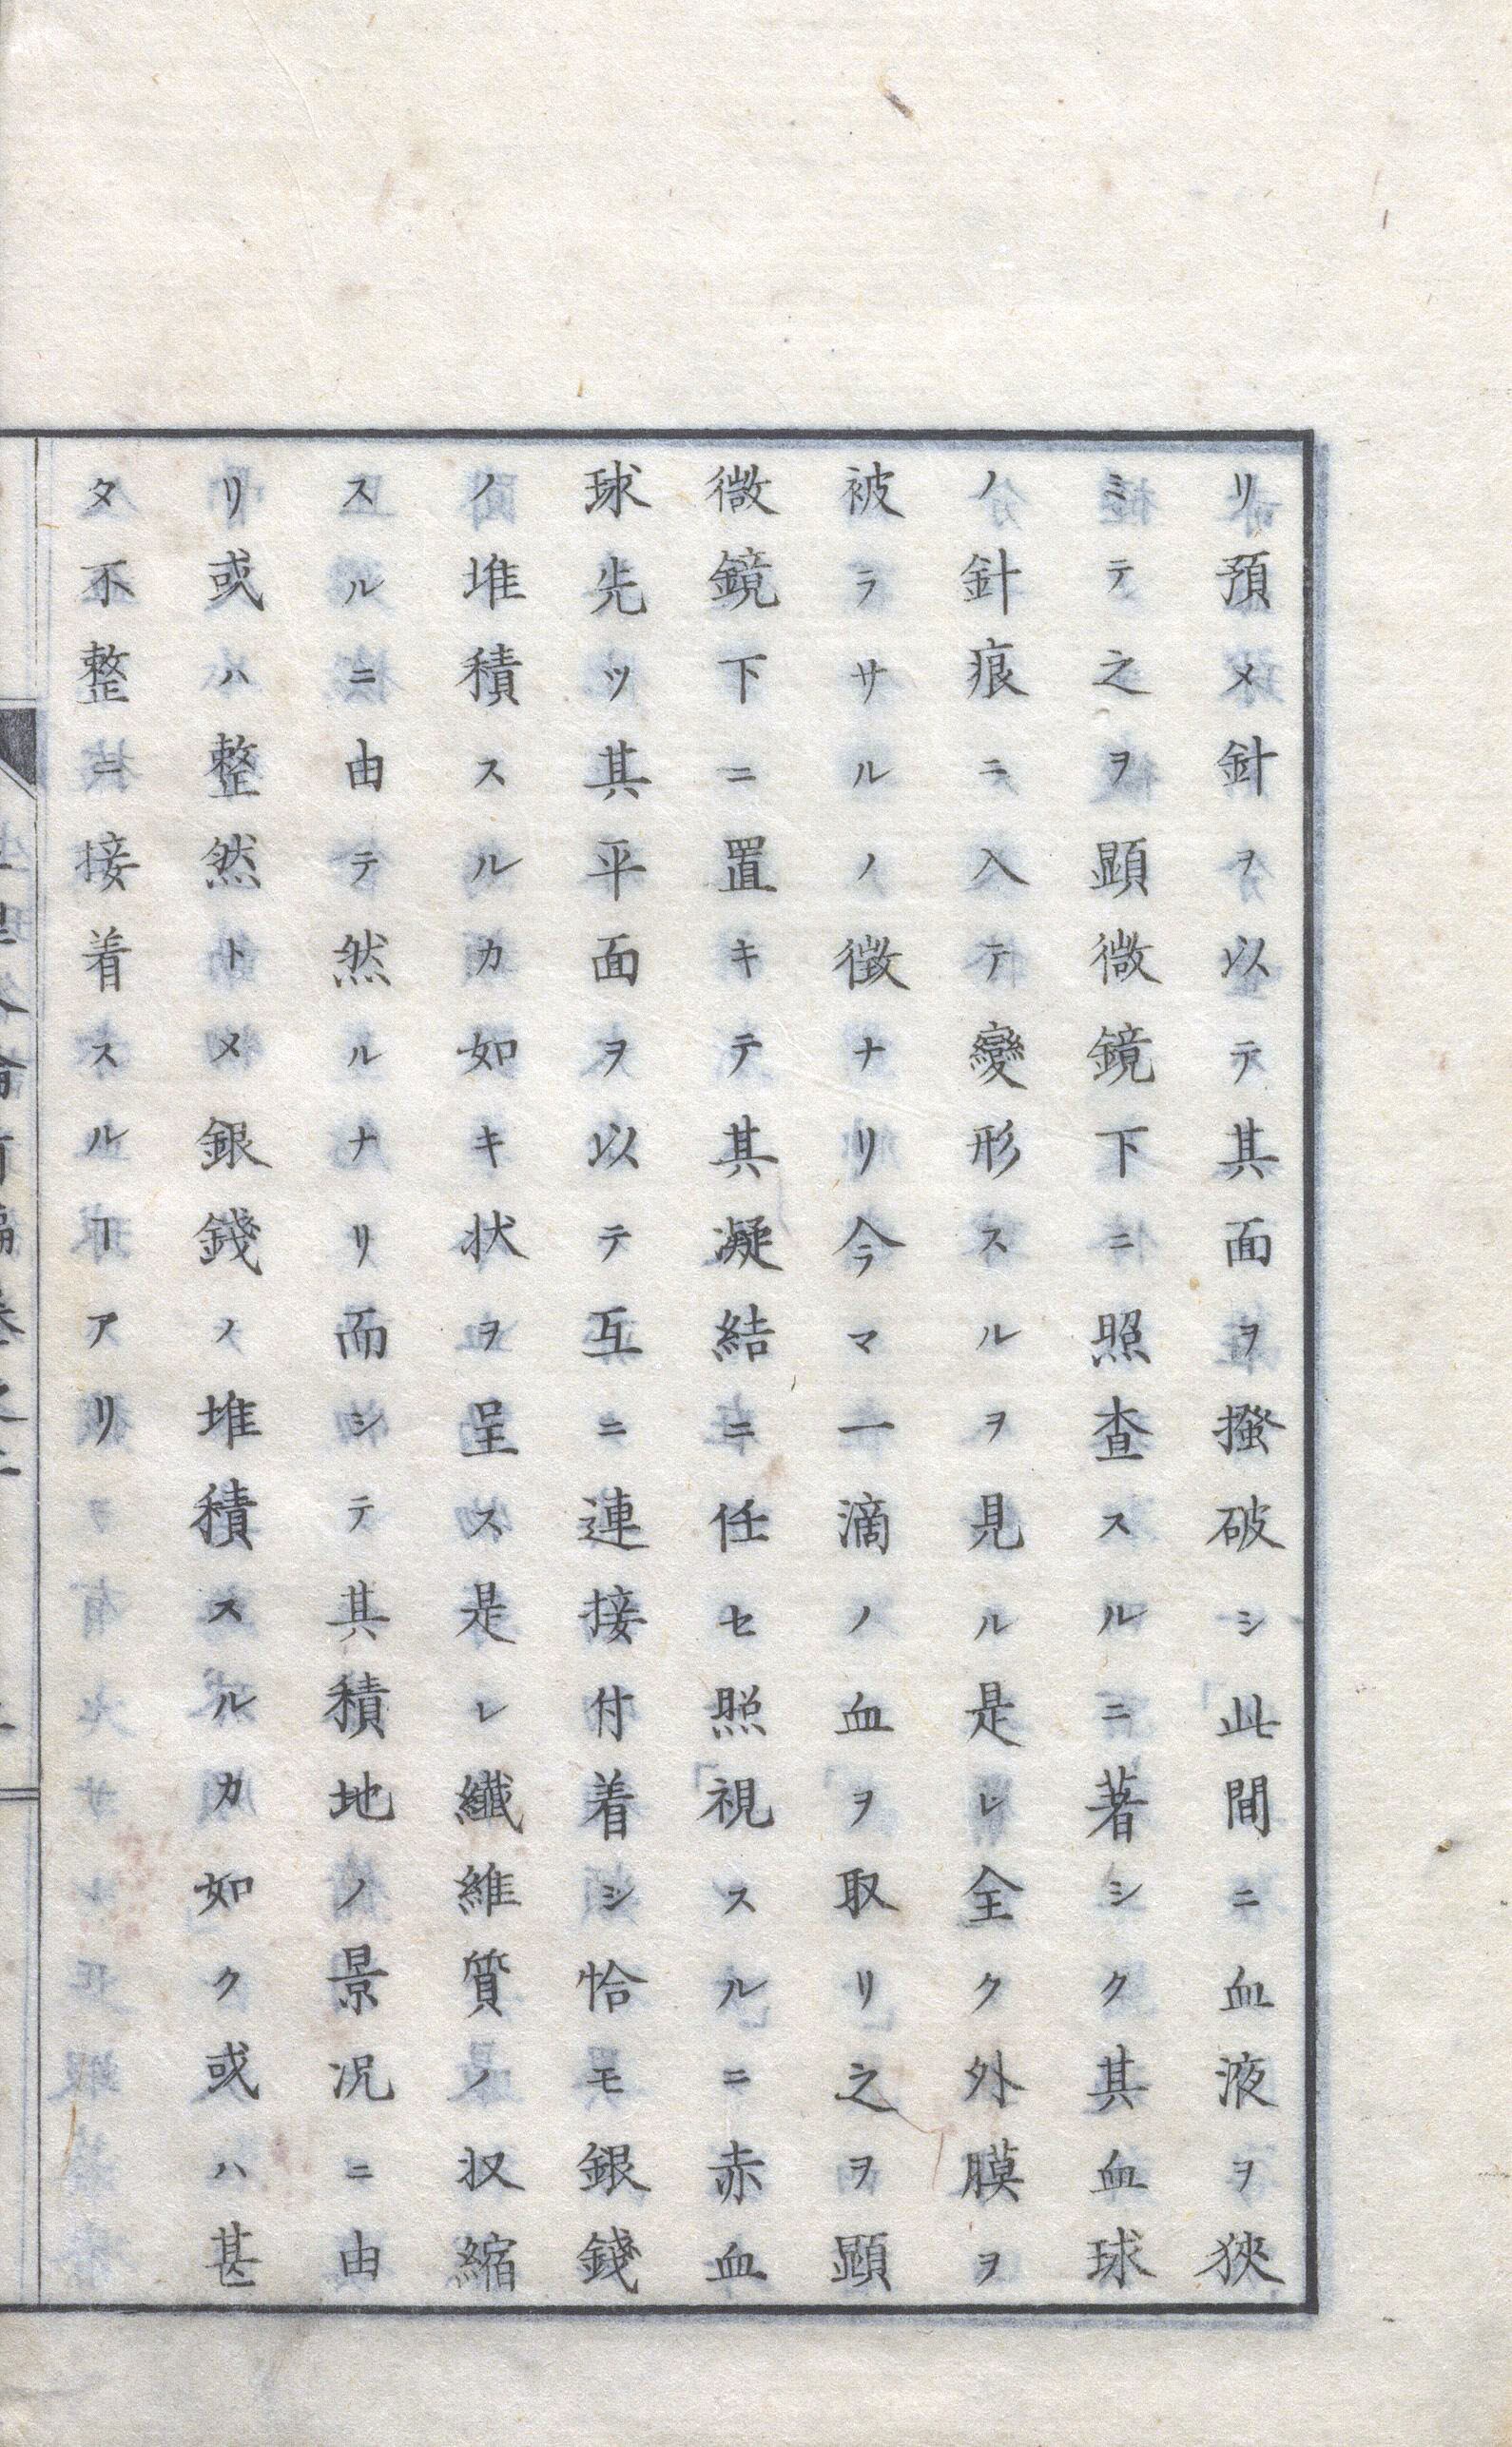 リ預メ針ヲ以テ其面ヲ撥破シ此間ニ血液ヲ狹
ミテ之ヲ顕微鏡下ニ照査スルニ著シク其血球
ノ針痕ニ入テ變形スルヲ見ル是レ全ク外膜ヲ
被ラサルノ徴ナリ今ラマ一滴ノ血ヲ取リ之ヲ顕
微鏡下ニ置キテ其凝結ニ任セ照視スルニ赤血
球先ツ其平面ヲ以テ互ニ連接付着シ恰モ銀錢
ノ堆積スルカ如キ状ヲ呈ス是レ纎維質ノ収縮
スルニ由テ然ルナリ而シテ其積地ノ景况ニ由
リ或ハ整然トメ銀錢ノ堆積スルカ如ク或ハ甚
タ不整ニ接着スルヿアリ